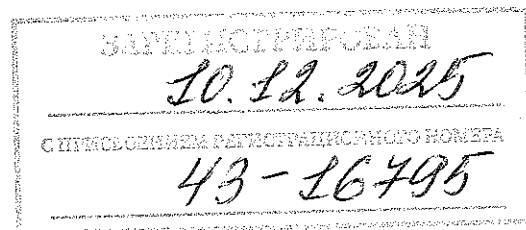 ЗАРЕГИСТРИРОВАН
10.12.2025
С ПРИСВОЕНИЕМ РЕГИСТРАЦИОННОГО НОМЕРА
43-16795